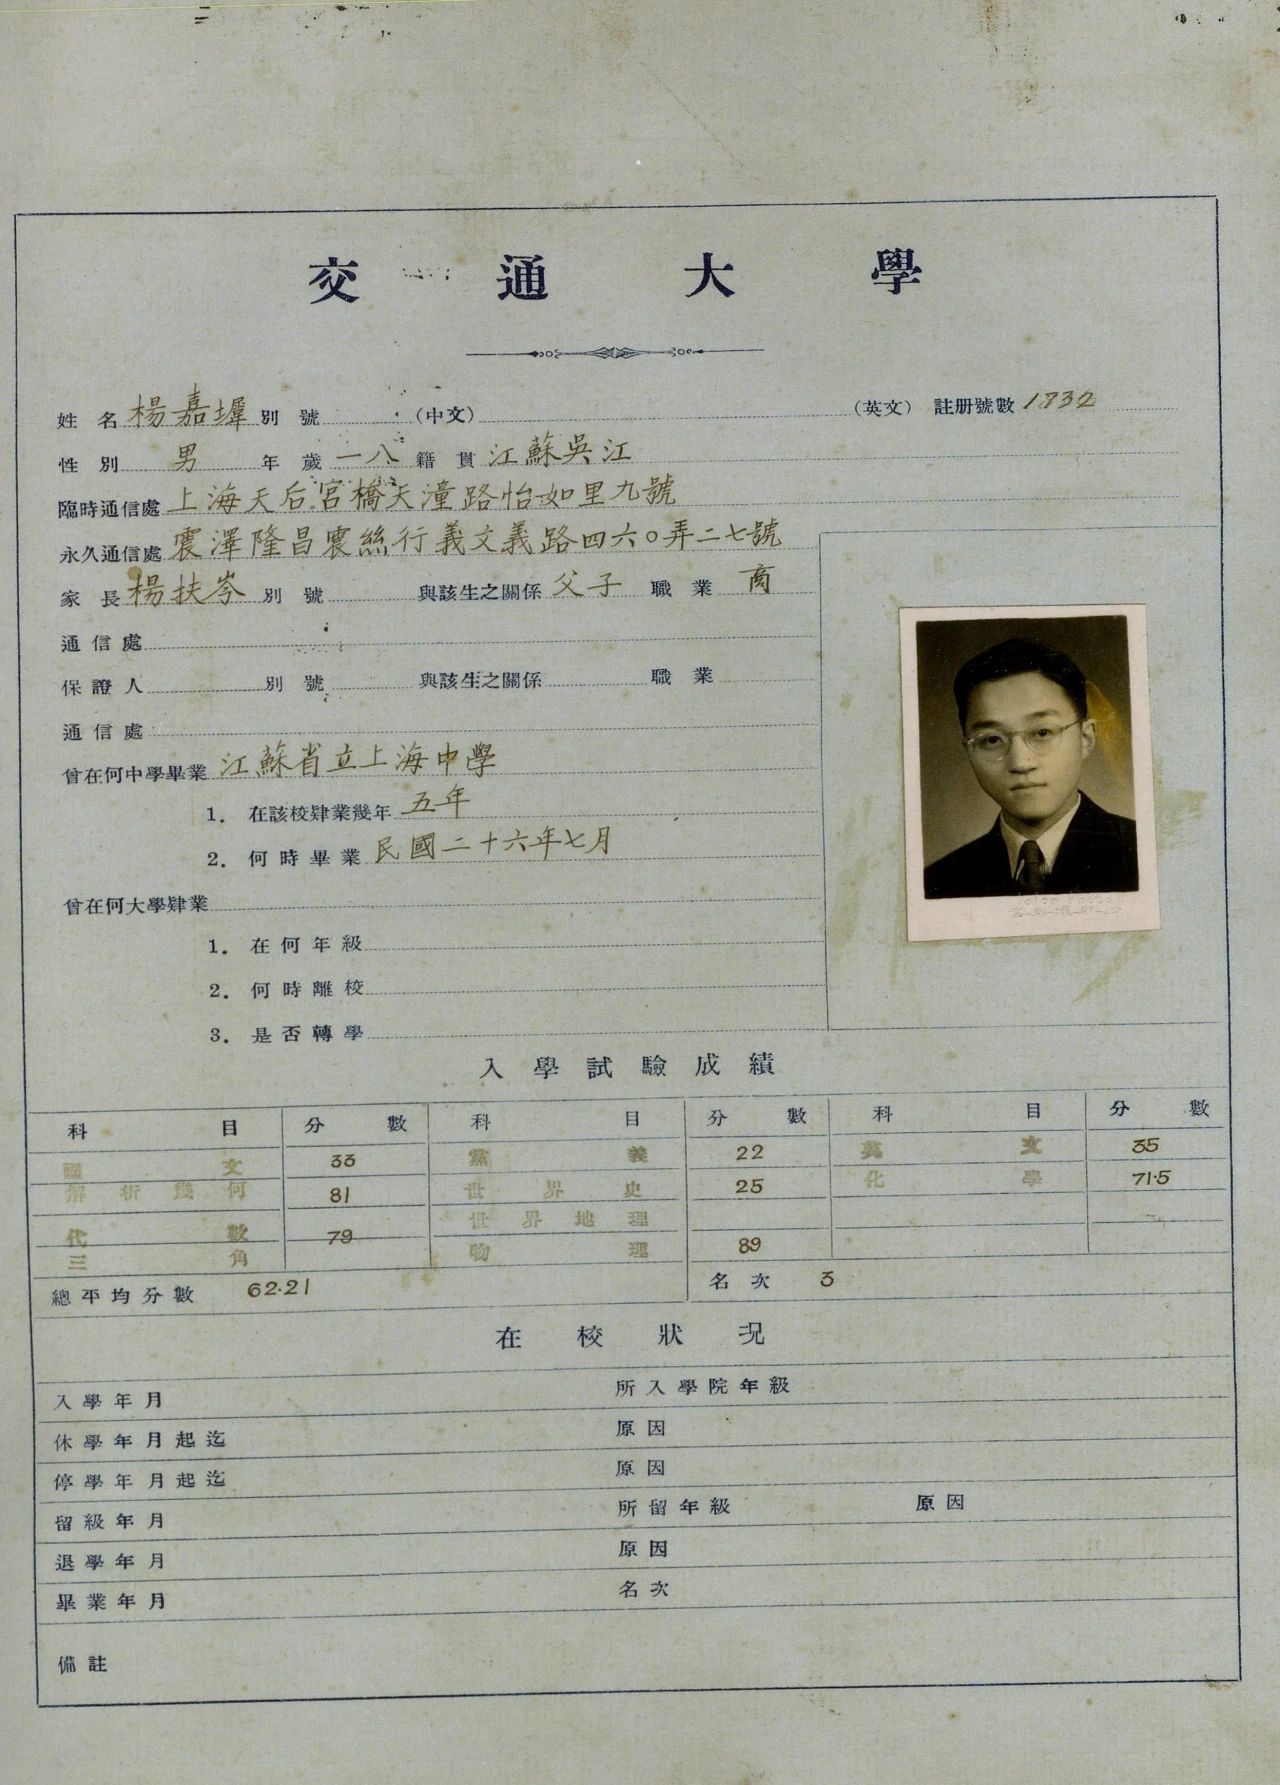 交通大學
姓名 楊嘉墀 別號 (中文) (英文) 註册號數 1832
性別 男 年歲 一八 籍貫 江蘇吳江
臨時通信處 上海天后宮橋天潼路怡如里九號
永久通信處 震澤隆昌震絲行義文義路四六〇弄二七號
家長 楊扶岑 別號 與該生之關係 父子 職業 商
通信處
保證人 別號 與該生之關係 職業
通信處
曾在何中學畢業 江蘇省立上海中學
1. 在該校肄業幾年 五年
2. 何時畢業 民國二十六年七月
曾在何大學肄業
1. 在何年級
2. 何時離校
3. 是否轉學
入學試驗成績
科目 分數 科目 分數 科目 分數
國文 33 黨義 22 英文 35
解析幾何 81 世界史 25 化學 71.5
代數 79 世界地理
三角 物理 89
總平均分數 62.21 名次 3
在校狀況
入學年月 所入學院年級
休學年月起迄 原因
停學年月起迄 原因
留級年月 所留年級 原因
退學年月 原因
畢業年月 名次
備註